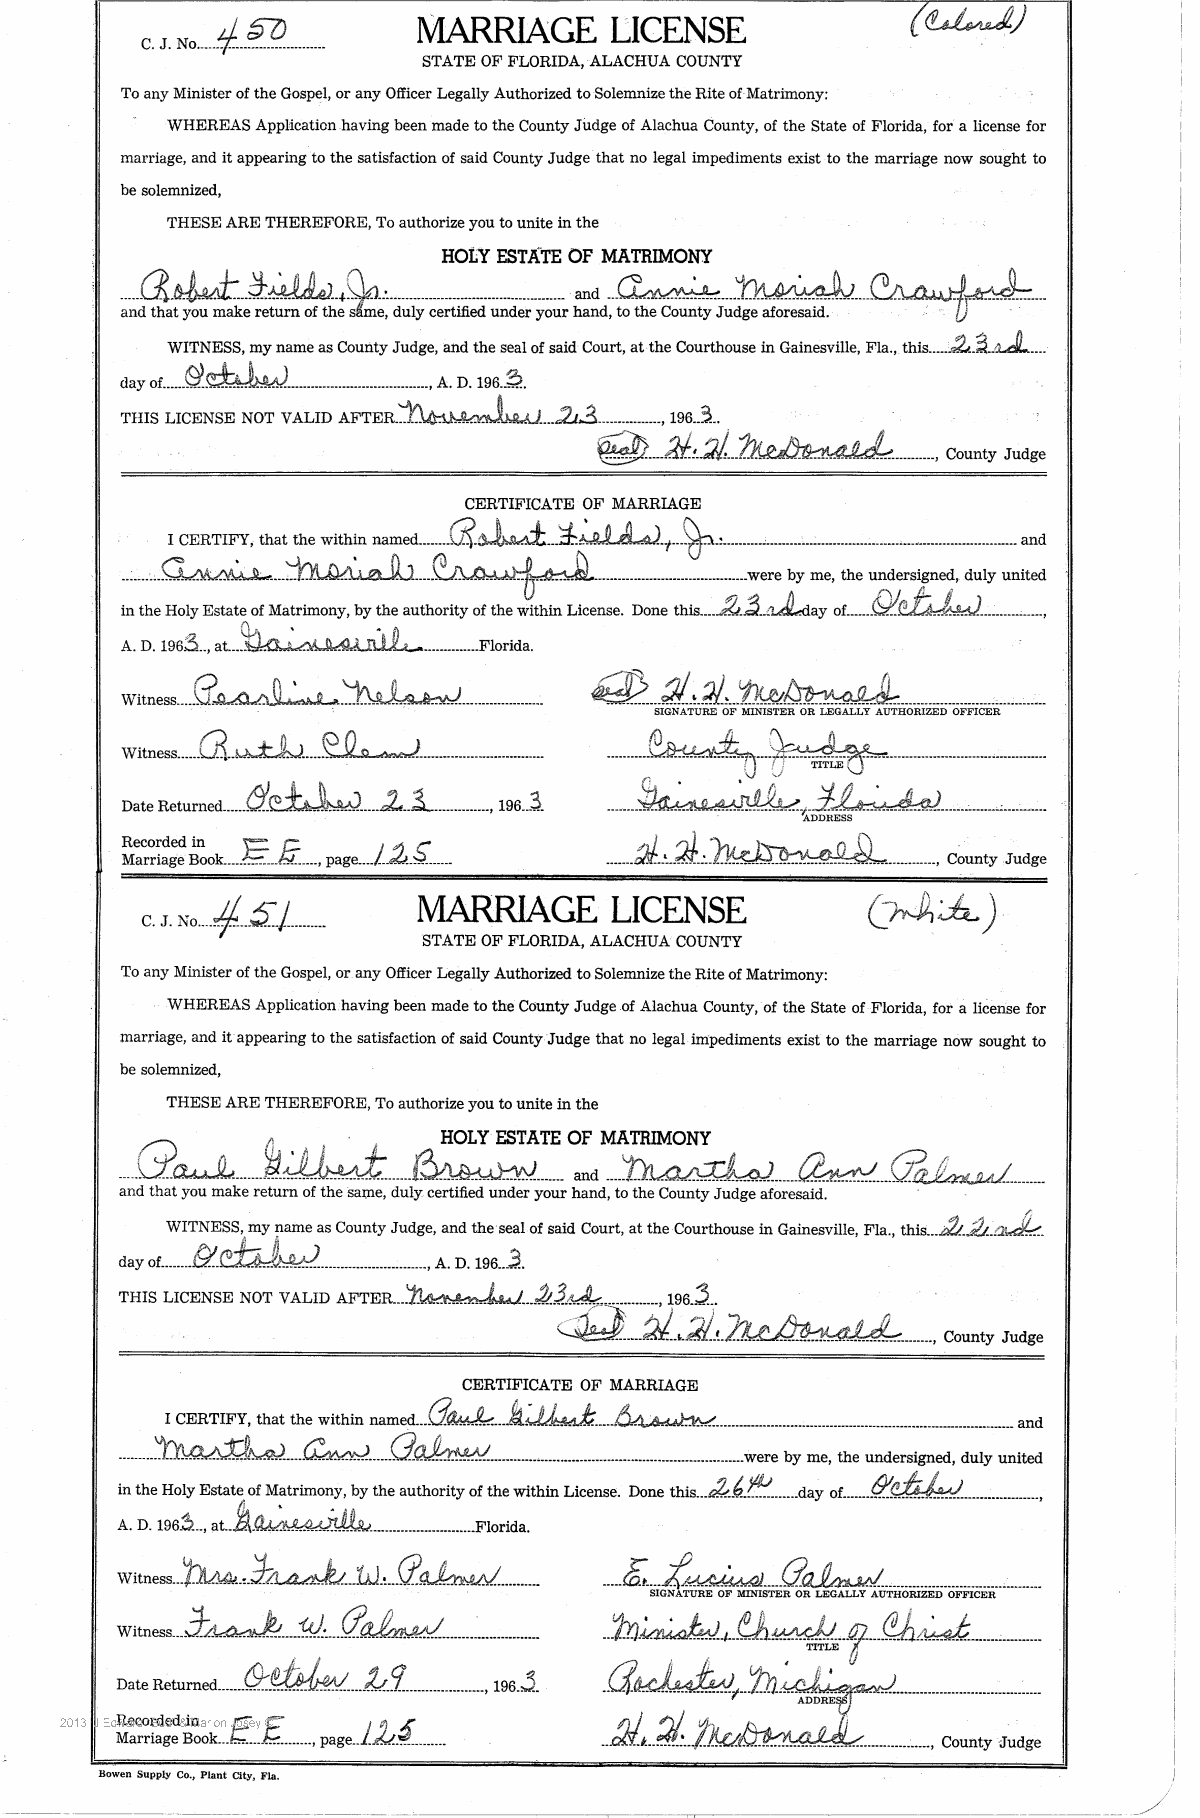 C. J. No. 450 MARRIAGE LICENSE (Colored)
STATE OF FLORIDA, ALACHUA COUNTY
To any Minister of the Gospel, or any Officer Legally Authorized to Solemnize the Rite of Matrimony:
WHEREAS Application having been made to the County Judge of Alachua County, of the State of Florida, for a license for
marriage, and it appearing to the satisfaction of said County Judge that no legal impediments exist to the marriage now sought to
be solemnized,
THESE ARE THEREFORE, To authorize you to unite in the
HOLY ESTATE OF MATRIMONY
Robert Fields, Jr. and Annie Moriah Crawford
and that you make return of the same, duly certified under your hand, to the County Judge aforesaid.
WITNESS, my name as County Judge, and the seal of said Court, at the Courthouse in Gainesville, Fla., this 23rd
day of October, A. D. 1963.
THIS LICENSE NOT VALID AFTER November 23, 1963.
(Seal) H. H. McDonald, County Judge
CERTIFICATE OF MARRIAGE
I CERTIFY, that the within named Robert Fields, Jr. and
Annie Moriah Crawford were by me, the undersigned, duly united
in the Holy Estate of Matrimony, by the authority of the within License. Done this 23rd day of October,
A. D. 1963, at Gainesville Florida.
Witness Pearline Nelson (Seal) H. H. McDonald
SIGNATURE OF MINISTER OR LEGALLY AUTHORIZED OFFICER
Witness Ruth Clem County Judge
TITLE
Date Returned October 23, 1963 Gainesville, Florida
ADDRESS
Recorded in
Marriage Book EE, page 125 H. H. McDonald, County Judge
C. J. No. 451 MARRIAGE LICENSE (White)
STATE OF FLORIDA, ALACHUA COUNTY
To any Minister of the Gospel, or any Officer Legally Authorized to Solemnize the Rite of Matrimony:
WHEREAS Application having been made to the County Judge of Alachua County, of the State of Florida, for a license for
marriage, and it appearing to the satisfaction of said County Judge that no legal impediments exist to the marriage now sought to
be solemnized,
THESE ARE THEREFORE, To authorize you to unite in the
HOLY ESTATE OF MATRIMONY
Paul Gilbert Brown and Martha Ann Palmer
and that you make return of the same, duly certified under your hand, to the County Judge aforesaid.
WITNESS, my name as County Judge, and the seal of said Court, at the Courthouse in Gainesville, Fla., this 22nd
day of October, A. D. 1963.
THIS LICENSE NOT VALID AFTER November 23rd, 1963.
(Seal) H. H. McDonald, County Judge
CERTIFICATE OF MARRIAGE
I CERTIFY, that the within named Paul Gilbert Brown and
Martha Ann Palmer were by me, the undersigned, duly united
in the Holy Estate of Matrimony, by the authority of the within License. Done this 26th day of October,
A. D. 1963, at Gainesville Florida.
Witness Mrs. Frank W. Palmer E. Lucius Palmer
SIGNATURE OF MINISTER OR LEGALLY AUTHORIZED OFFICER
Witness Frank W. Palmer Minister, Church of Christ
TITLE
Date Returned October 29, 1963 Rochester, Michigan
ADDRESS
Recorded in
Marriage Book EE, page 125 H. H. McDonald, County Judge
2013
Bowen Supply Co., Plant City, Fla.